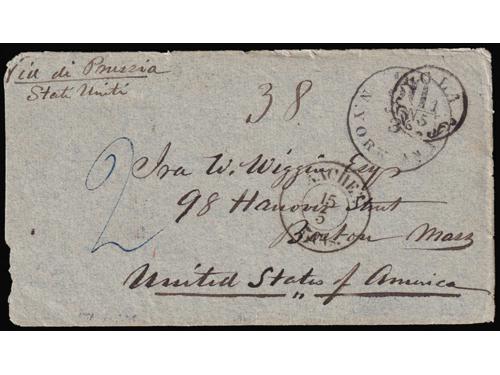 Via di Prussia
Stati Uniti
38
N. YORK AM.
POLA
2
Ira W. Wiggin Esqr
AACHEN
15
5
98 Hanover Street
Boston Mass
United States of America